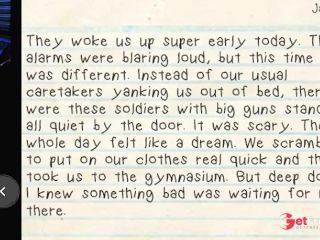 Ja
They woke us up super early today. Th
alarms were blaring loud, but this time
was different. Instead of our usual
caretakers yanking us out of bed, ther
were these soldiers with big guns stand
all quiet by the door. It was scary. Th
whole day felt like a dream. We scramb
to put on our clothes real quick and th
took us to the gymnasium. But deep do
I knew something bad was waiting for
there.